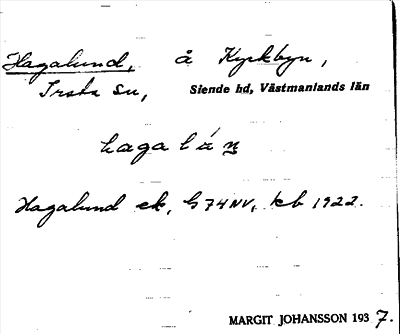 Hagalund, å Kyrkbyn,
Irsta sn, Siende hd, Västmanlands län
hagalún
Hagalund ek, G74NV, kb 1922.
MARGIT JOHANSSON 1937.